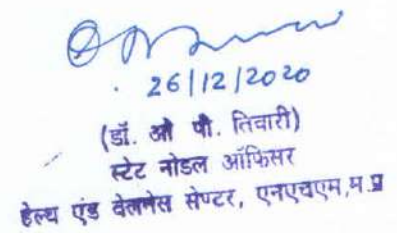 26/12/2020
(डॉ. ओ पी. तिवारी)
स्टेट नोडल ऑफिसर
हेल्थ एंड वेलनेस सेण्टर, एनएचएम,म.प्र